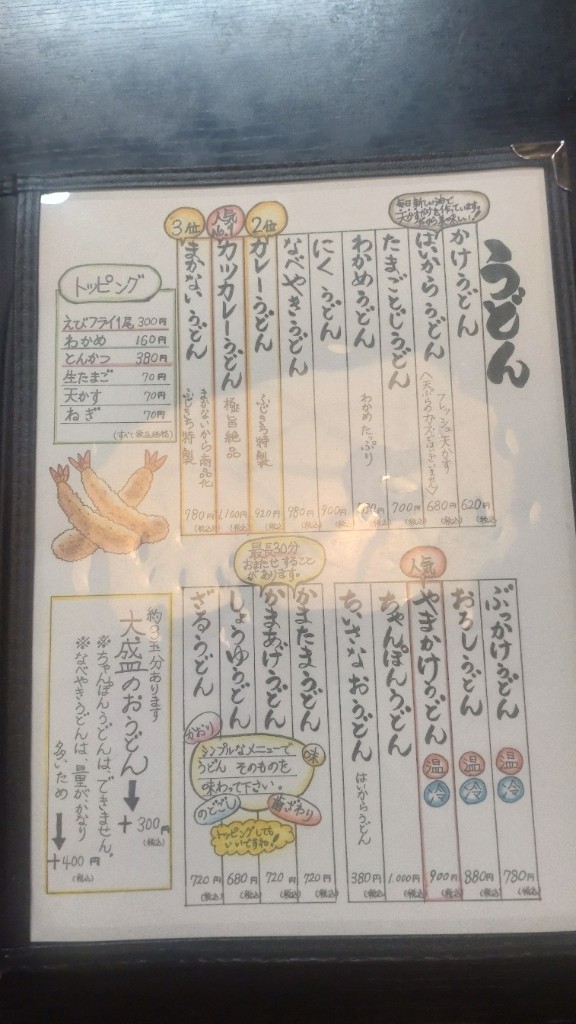 うどん
かけうどん 620円(税込)
はいからうどん フレッシュ天かす 680円(税込)
たまごとじうどん 700円(税込)
わかめうどん わかめたっぷり
にくうどん 900円(税込)
なべやきうどん 980円(税込)
2位
カレーうどん ふじきち特製 920円(税込)
人気No.1
カツカレーうどん 極旨絶品 1,100円(税込)
3位
まかないうどん まかないから商品化 ふじきち特製 980円(税込)
トッピング
えびフライ1尾 300円
わかめ 160円
とんかつ 380円
生たまご 70円
天かす 70円
ねぎ 70円
(すべて税込価格)
ぶっかけうどん 温 冷 780円(税込)
おろしうどん 温 冷 880円(税込)
人気
やまかけうどん 温 冷 900円(税込)
ちゃんぽんうどん 1,000円(税込)
ちいさなおうどん はいからうどん 380円(税込)
最長30分
おまたせすること
があります。
かまたまうどん 720円(税込)
かまあげうどん 720円(税込)
しょうゆうどん 680円(税込)
ざるうどん 720円(税込)
シンプルなメニューで
うどんそのものを
味わって下さい。
かおり
味
のどごし
歯ざわり
トッピングしても
いいですね!
約3玉分あります
大盛のおうどん→+300円(税込)
※ちゃんぽんうどんは、できません。
※なべやきうどんは、量がかなり
多いため→+400円(税込)